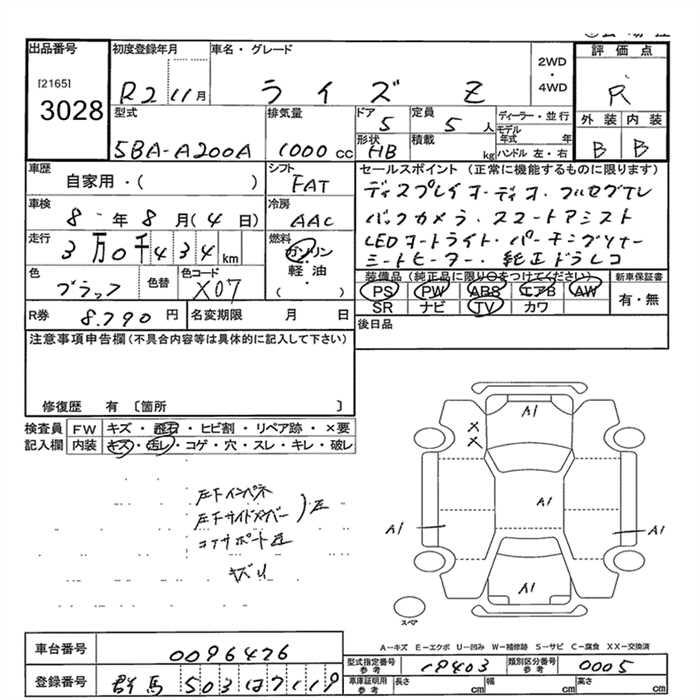 出品番号
[2165]
3028
初度登録年月
R2 11月
車名・グレード
ライズ Z
2WD
・
4WD
評価点
R
外装 内装
B B
型式
5BA-A200A
排気量
1000 cc
ドア
5
定員
5 人
形状
HB
積載
kg
ディーラー・並行
モデル
年式 年
ハンドル 左・右
車歴
自家用・( )
シフト
FAT
車検
8 年 8 月 ( 4 日)
冷房
AAC
走行
3万0千434 km
燃料
ガソリン
・
軽油
( )
色
ブラック
色替
色コード
X07
R券 8.790 円
名変期限 月 日
セールスポイント (正常に機能するものに限ります)
ディスプレイオーディオ・フルセグTV
バックカメラ・スマートアシスト
LEDオートライト・パーキングソナー
シートヒーター・純正ドラレコ
装備品(純正品に限り○をつけてください)
PS PW ABS エアB AW
SR ナビ TV カワ
新車保証書
有・無
後日品
注意事項申告欄(不具合内容等は具体的に記入して下さい)
修復歴 有 〔箇所 〕
検査員
記入欄
FW キズ・飛石・ヒビ割・リペア跡・×要
内装 キズ・汚レ・コゲ・穴・スレ・キレ・破レ
左Fインパネ
左Fサイドメンバー
コアサポート
A1
×
×
A1
A1
A1
A1
スペア
A-キズ E-エクボ U-凹み W-補修跡 S-サビ C-腐食 XX-交換済
車台番号 0096426
登録番号 群馬 503
型式指定番号
参考
19403
類別区分番号
参考
0005
車庫証明用
参考
長さ cm 幅 cm 高さ cm